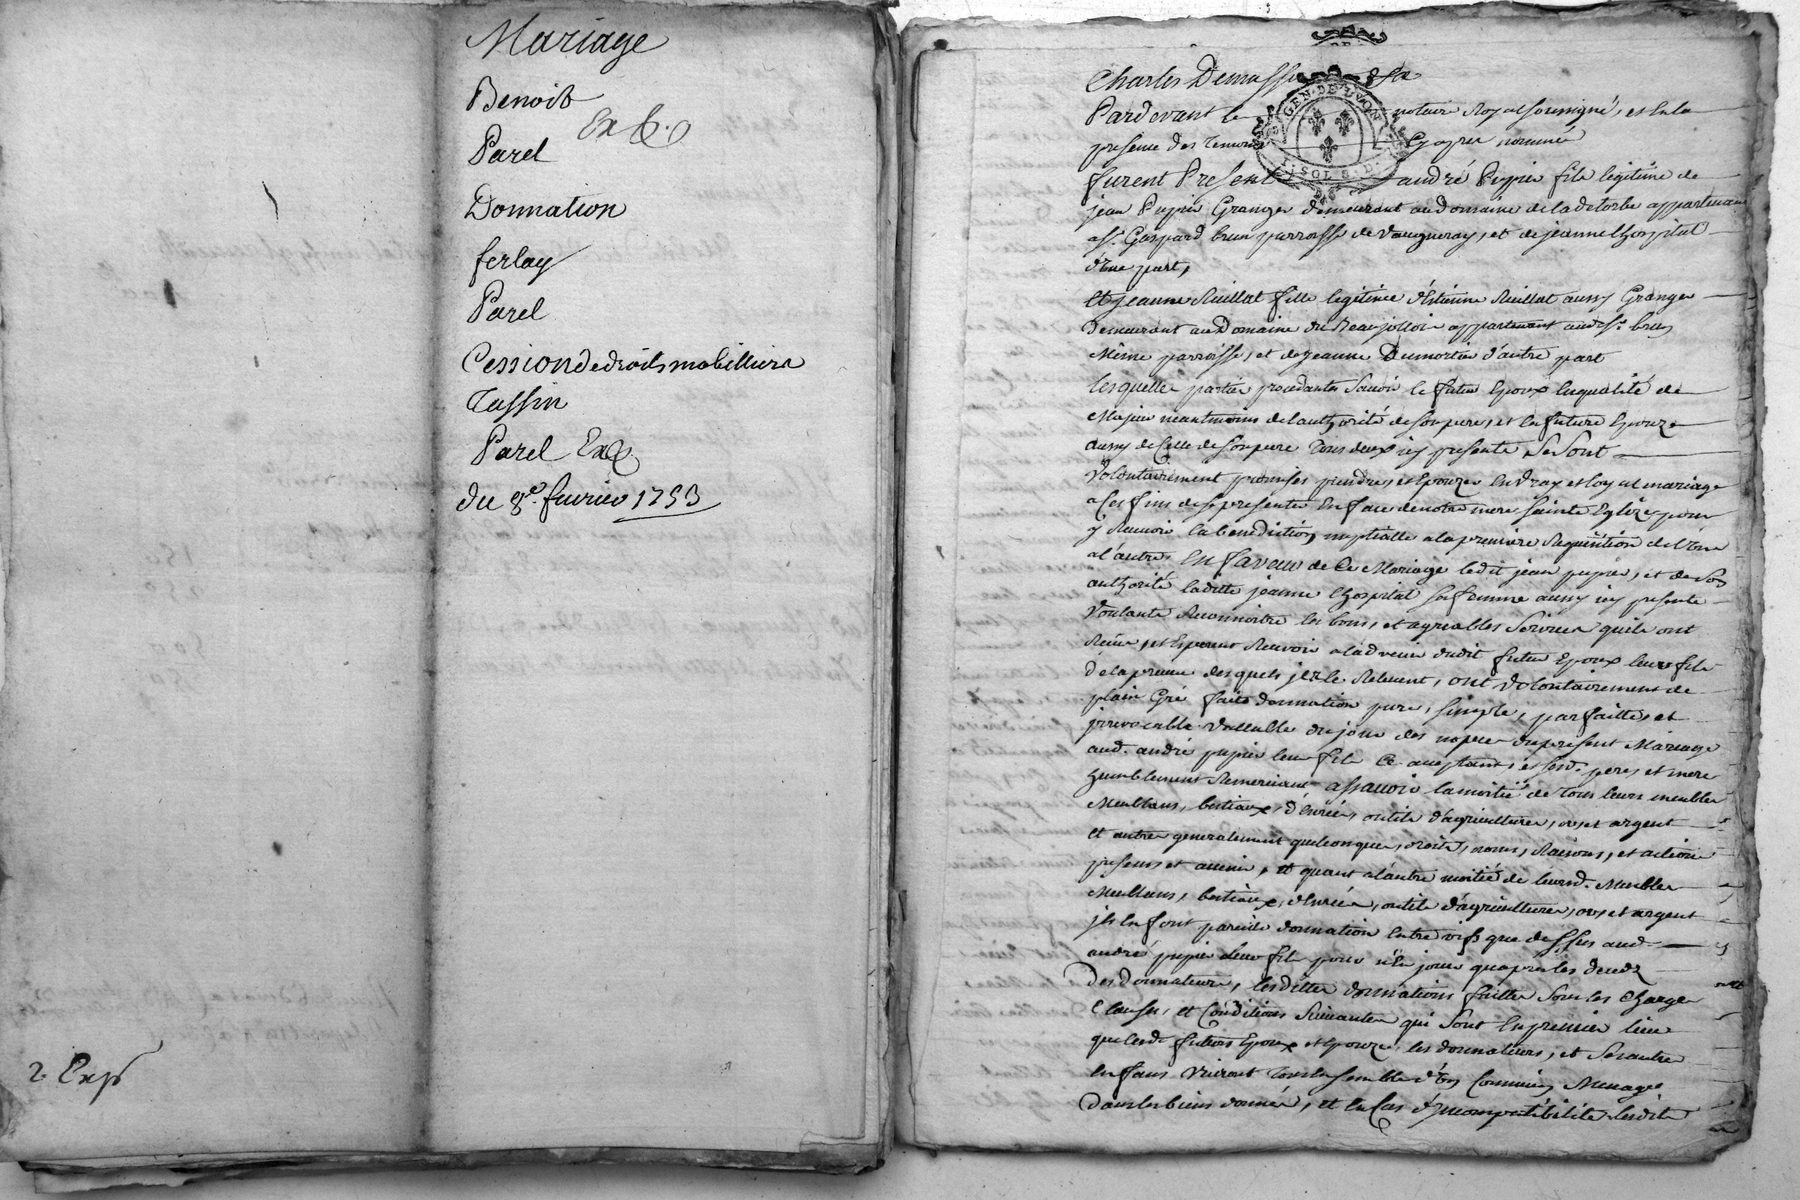 Mariage
Benoit
Parel
Donnation
ferlay
Parel
Cession de droits mobilliers
Tassin
Parel
du 8e. fevrier 1753
2. Exp
GEN. DE LYON
SOLS
Charles
Pardevant le notaire Royal soussigné, et en la
presence des temoins cy apres nommé
furent Present andré Pupier fils legitime de
jean Pupier Granger demeurant au domaine de la detorbe appartenant
a sr. Gaspard brun parroisse de Vaugneray, et de jeanne lhospital
d'une part,
Et jeanne Ruillat fille legitime d'Estienne Ruillat aussy Granger
demeurant au Domaine du Beaujollois appartenant audit sr. brun
Même parroisse, et de jeanne Dumortier d'autre part
lesquelles parties procedantes Savoir le futur Epoux en qualité de
Majeur neantmoins de l'authorité de son pere, et la future Epouze
aussy de Celle de son pere tous deux icy presents Se Sont
Volontairement promises prendre, et Epouzer En Vray et loyal mariage
a Ces fins de se presenter En face de notre mere sainte Eglize pour
y Recevoir la benediction nuptialle a la premiere Requisition de l'une
a l'autre, En faveur de Ce Mariage ledit jean pupier, et de Son
authorité laditte jeanne lhospital sa femme aussy icy presente
Voulants Reconnoitre les bons, et agreables Services quils ont
Receu, et Esperent Recevoir a l'advenir dudit futur Epoux leur fils
de la preuve desquels ils le Relevent, ont volontairement de
plain Gré fait donnation pure, simple, parfaitte, et
irrevocable Vallable du jour des nopces du present Mariage
aud. andré pupier leur fils Ce acceptant, et sesd. peres et mere
humblement Remerciant assavoir la moitié de tous leurs meubles
Meublans, bestiaux, denrées, outils d'agriculture, or, et argent
et autres generalement quelconques, droits, noms, Raisons, et actions
presens et avenir, et quant a l'autre moitié de leursd. Meubles
Meublans, bestiaux, denrées, outils d'agriculture, or, et argent
ils en font pareille donnation Entre vifs que dessus aud.
andré pupier leur fils pour n'en jouir qu'apres les deceds
des donnateurs, lesdittes donnations faittes Sous les Charges
Clauses, et Conditions Suivantes qui Sont En premier lieu
que lesd. futurs Epoux et Epouze, les donnateurs, et Ses autres
enfans Vivront tous Ensemble d'un Commun Menage
dans les biens donnés, et En Cas d'jncompatibilité lesdits